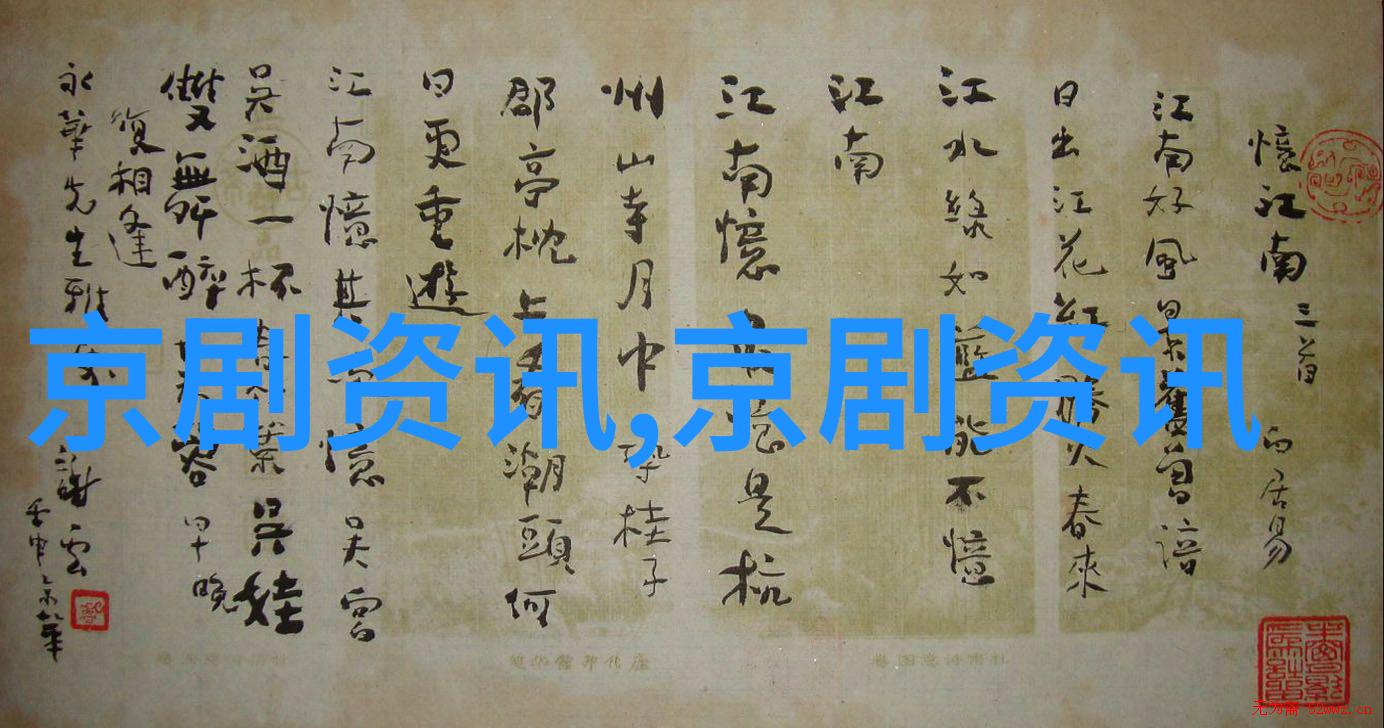 憶江南 三首 白居易
江南好風景舊曾諳
日出江花紅勝火春來
江水綠如藍能不憶
江南
江南憶最憶是杭
州山寺月中尋桂子
郡亭枕上看潮頭何
日更重遊
江南憶其次憶吳宮
吳酒一杯春竹葉吳娃
雙舞醉芙蓉早晚
復相逢
永華先生雅 謝雲
壬申 京華
京剧资讯,京剧资讯
无为斋 52wwz.cn